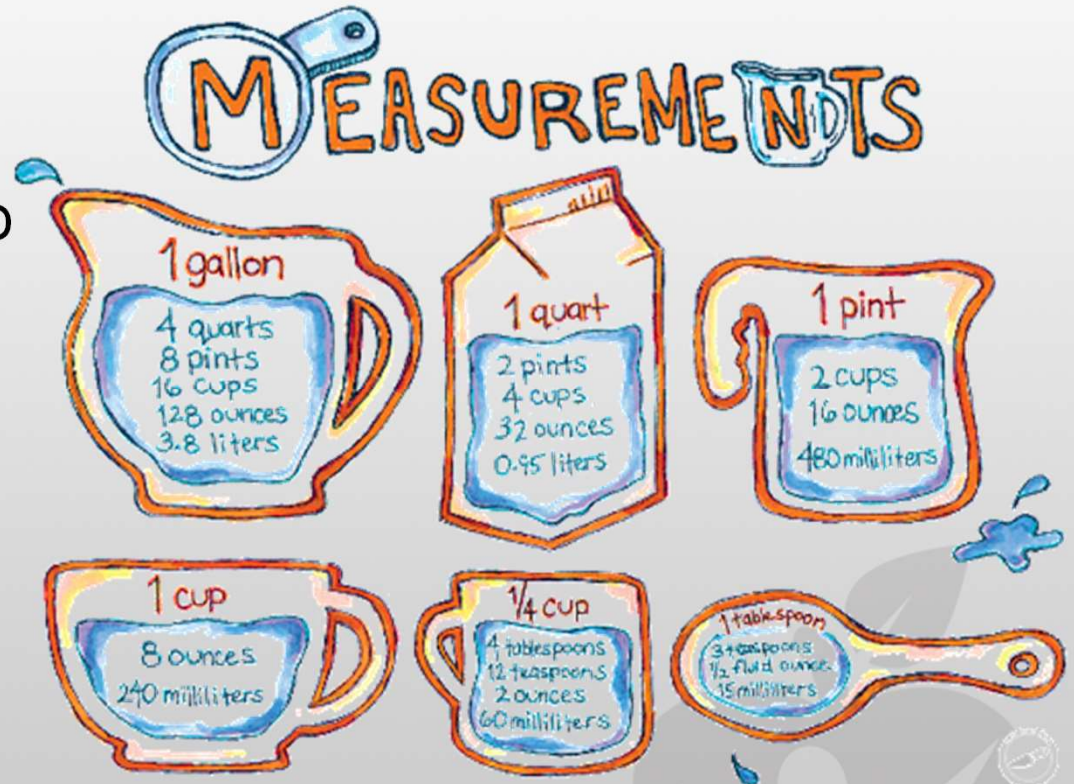 MEASUREMENTS
1 gallon
4 quarts
8 pints
16 cups
128 ounces
3.8 liters
1 quart
2 pints
4 cups
32 ounces
0.95 liters
1 pint
2 cups
16 ounces
480 milliliters
1 cup
8 ounces
240 milliliters
1/4 cup
4 tablespoons
12 teaspoons
2 ounces
60 milliliters
1 tablespoon
3 teaspoons
1/2 fluid ounce
15 milliliters